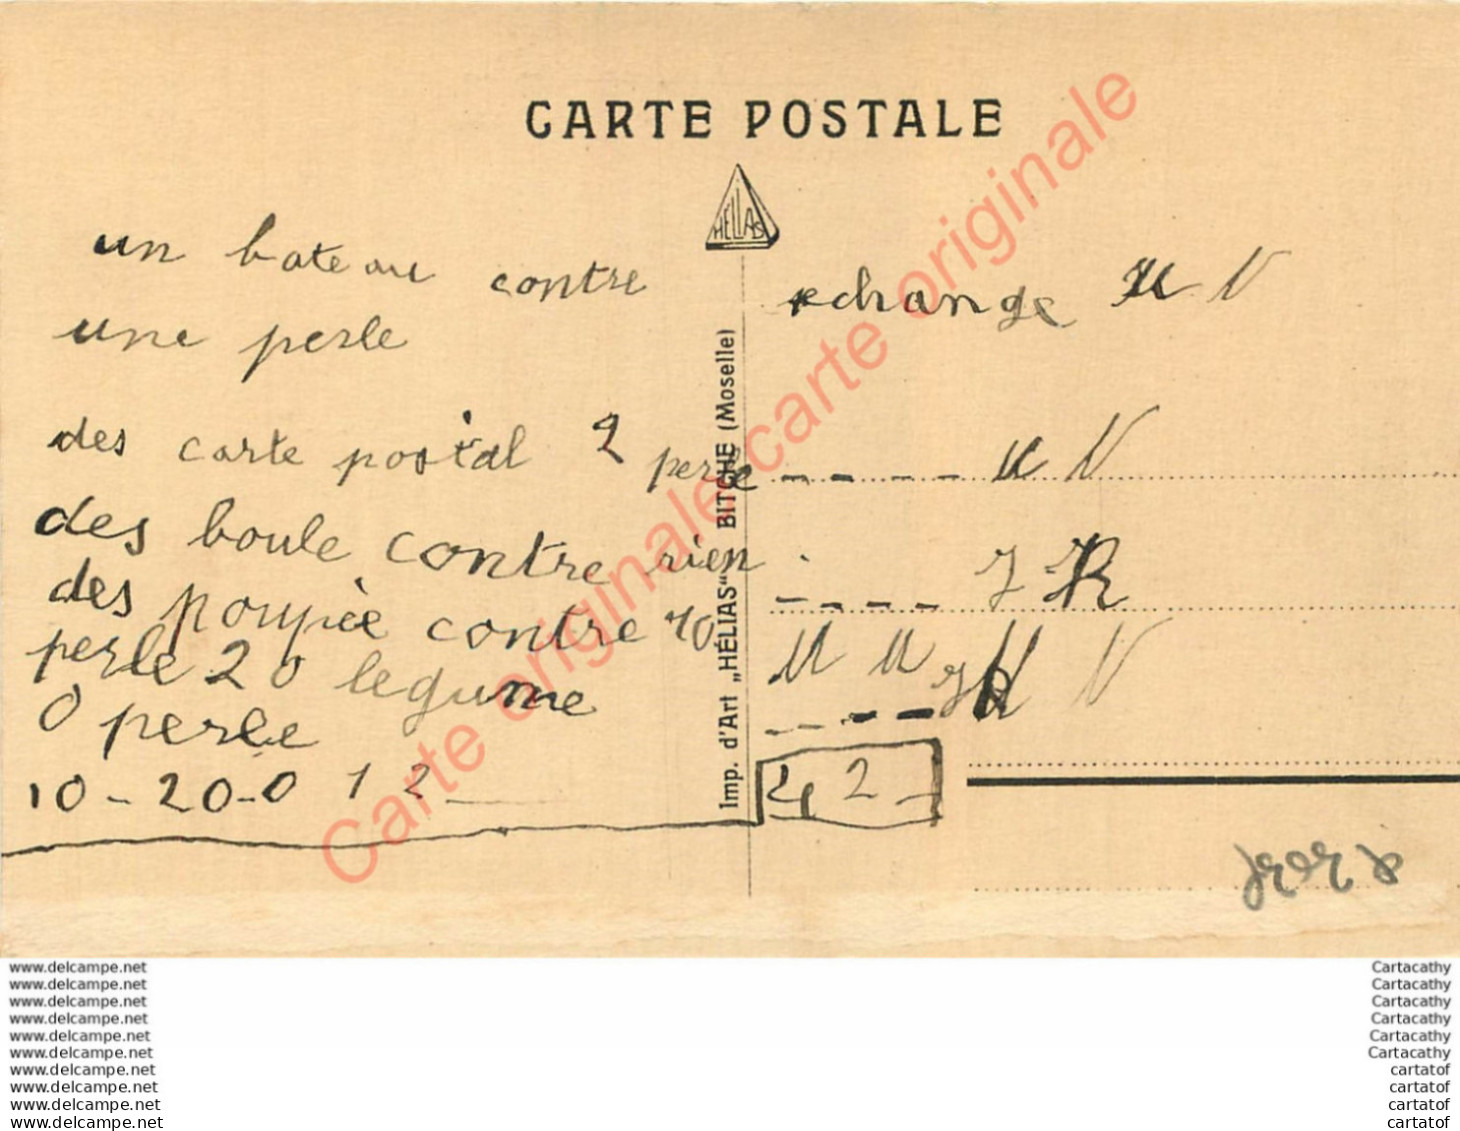 CARTE POSTALE
HÉLIAS
un bateau contre
une perle
des carte postal 2 perle
des boule contre rien
des poupée contre 10
perle 20 legume
0 perle
10-20-0 12
Imp. d'Art „HÉLIAS" BITCHE (Moselle)
echange
42
Carte originale carte originale
www.delcampe.net
www.delcampe.net
www.delcampe.net
www.delcampe.net
www.delcampe.net
www.delcampe.net
www.delcampe.net
www.delcampe.net
www.delcampe.net
www.delcampe.net
Cartacathy
Cartacathy
Cartacathy
Cartacathy
Cartacathy
Cartacathy
cartatof
cartatof
cartatof
cartatof